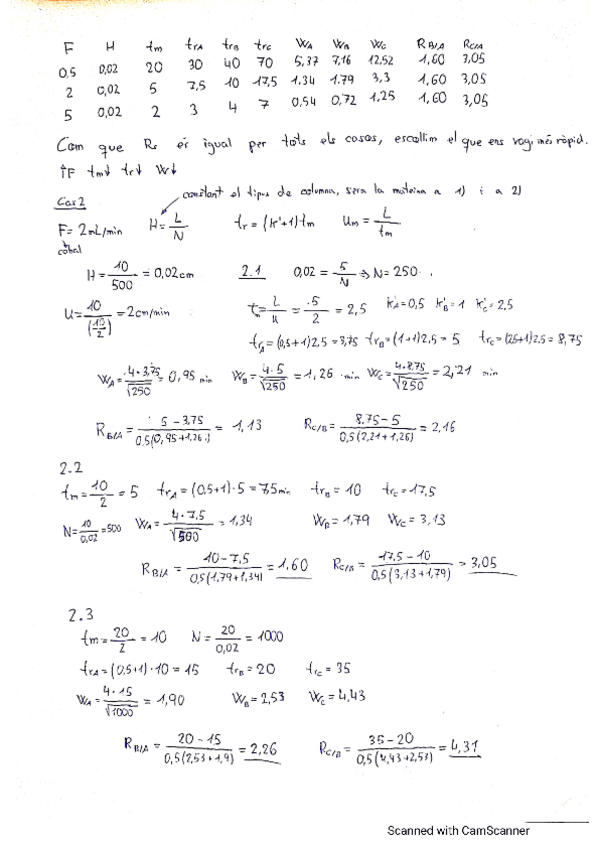 F H tm trA trB trC WA WB WC RB/A RC/A
0,5 0,02 20 30 40 70 5,37 7,16 12,52 1,60 3,05
2 0,02 5 7,5 10 17,5 1,34 1.79 3,3 1,60 3,05
5 0,02 2 3 4 7 0,54 0,72 1,25 1,60 3,05
Com que Rs és igual per tots els casos, escollim el que ens vagi més ràpid.
↑F tm↓ tr↓ W↓
constant el tipus de columna, sera la mateixa a 1) i a 2)
Cas 2
F= 2mL/min H= L/N tr = (k'+1)tm um = L/tm
H= 10/500 = 0,02cm 2.1 0,02 = 5/N ⇒ N= 250.
U= 10/(10/2) = 2cm/min tm= L/u = 5/2 = 2,5 k'A=0,5 k'B= 1 k'C= 2,5
trA= (0,5+1)2,5 = 3,75 trB= (1+1)2,5 = 5 trC= (2,5+1)2,5 = 8,75
WA= 4·3,75/√250 = 0,95 min WB= 4·5/√250 = 1,26 min WC= 4·8,75/√250 = 2,21 min
RB/A = 5-3,75/0,5(0,95+1,26) = 1,13 RC/B= 8.75-5/0,5(2,21+1,26) = 2,16
2.2
tm= 10/2 = 5 trA= (0.5+1)·5 = 7,5min trB= 10 trC= 17,5
N= 10/0,02 =500 WA= 4·7,5/√500 = 1,34 WB= 1,79 WC= 3,13
RB/A = 10-7,5/0,5(1,79+1,34) = 1,60 RC/B= 17,5-10/0,5(3,13+1,79) = 3,05
2.3
tm= 20/2 = 10 N= 20/0,02 = 1000
trA= (0.5+1)·10 = 15 trB= 20 trC= 35
WA= 4·15/√1000 = 1,90 WB= 2,53 WC= 4,43
RB/A = 20-15/0,5(2,53+1,9) = 2,26 RC/B= 35-20/0,5(4,43+2,53) = 4,31
Scanned with CamScanner